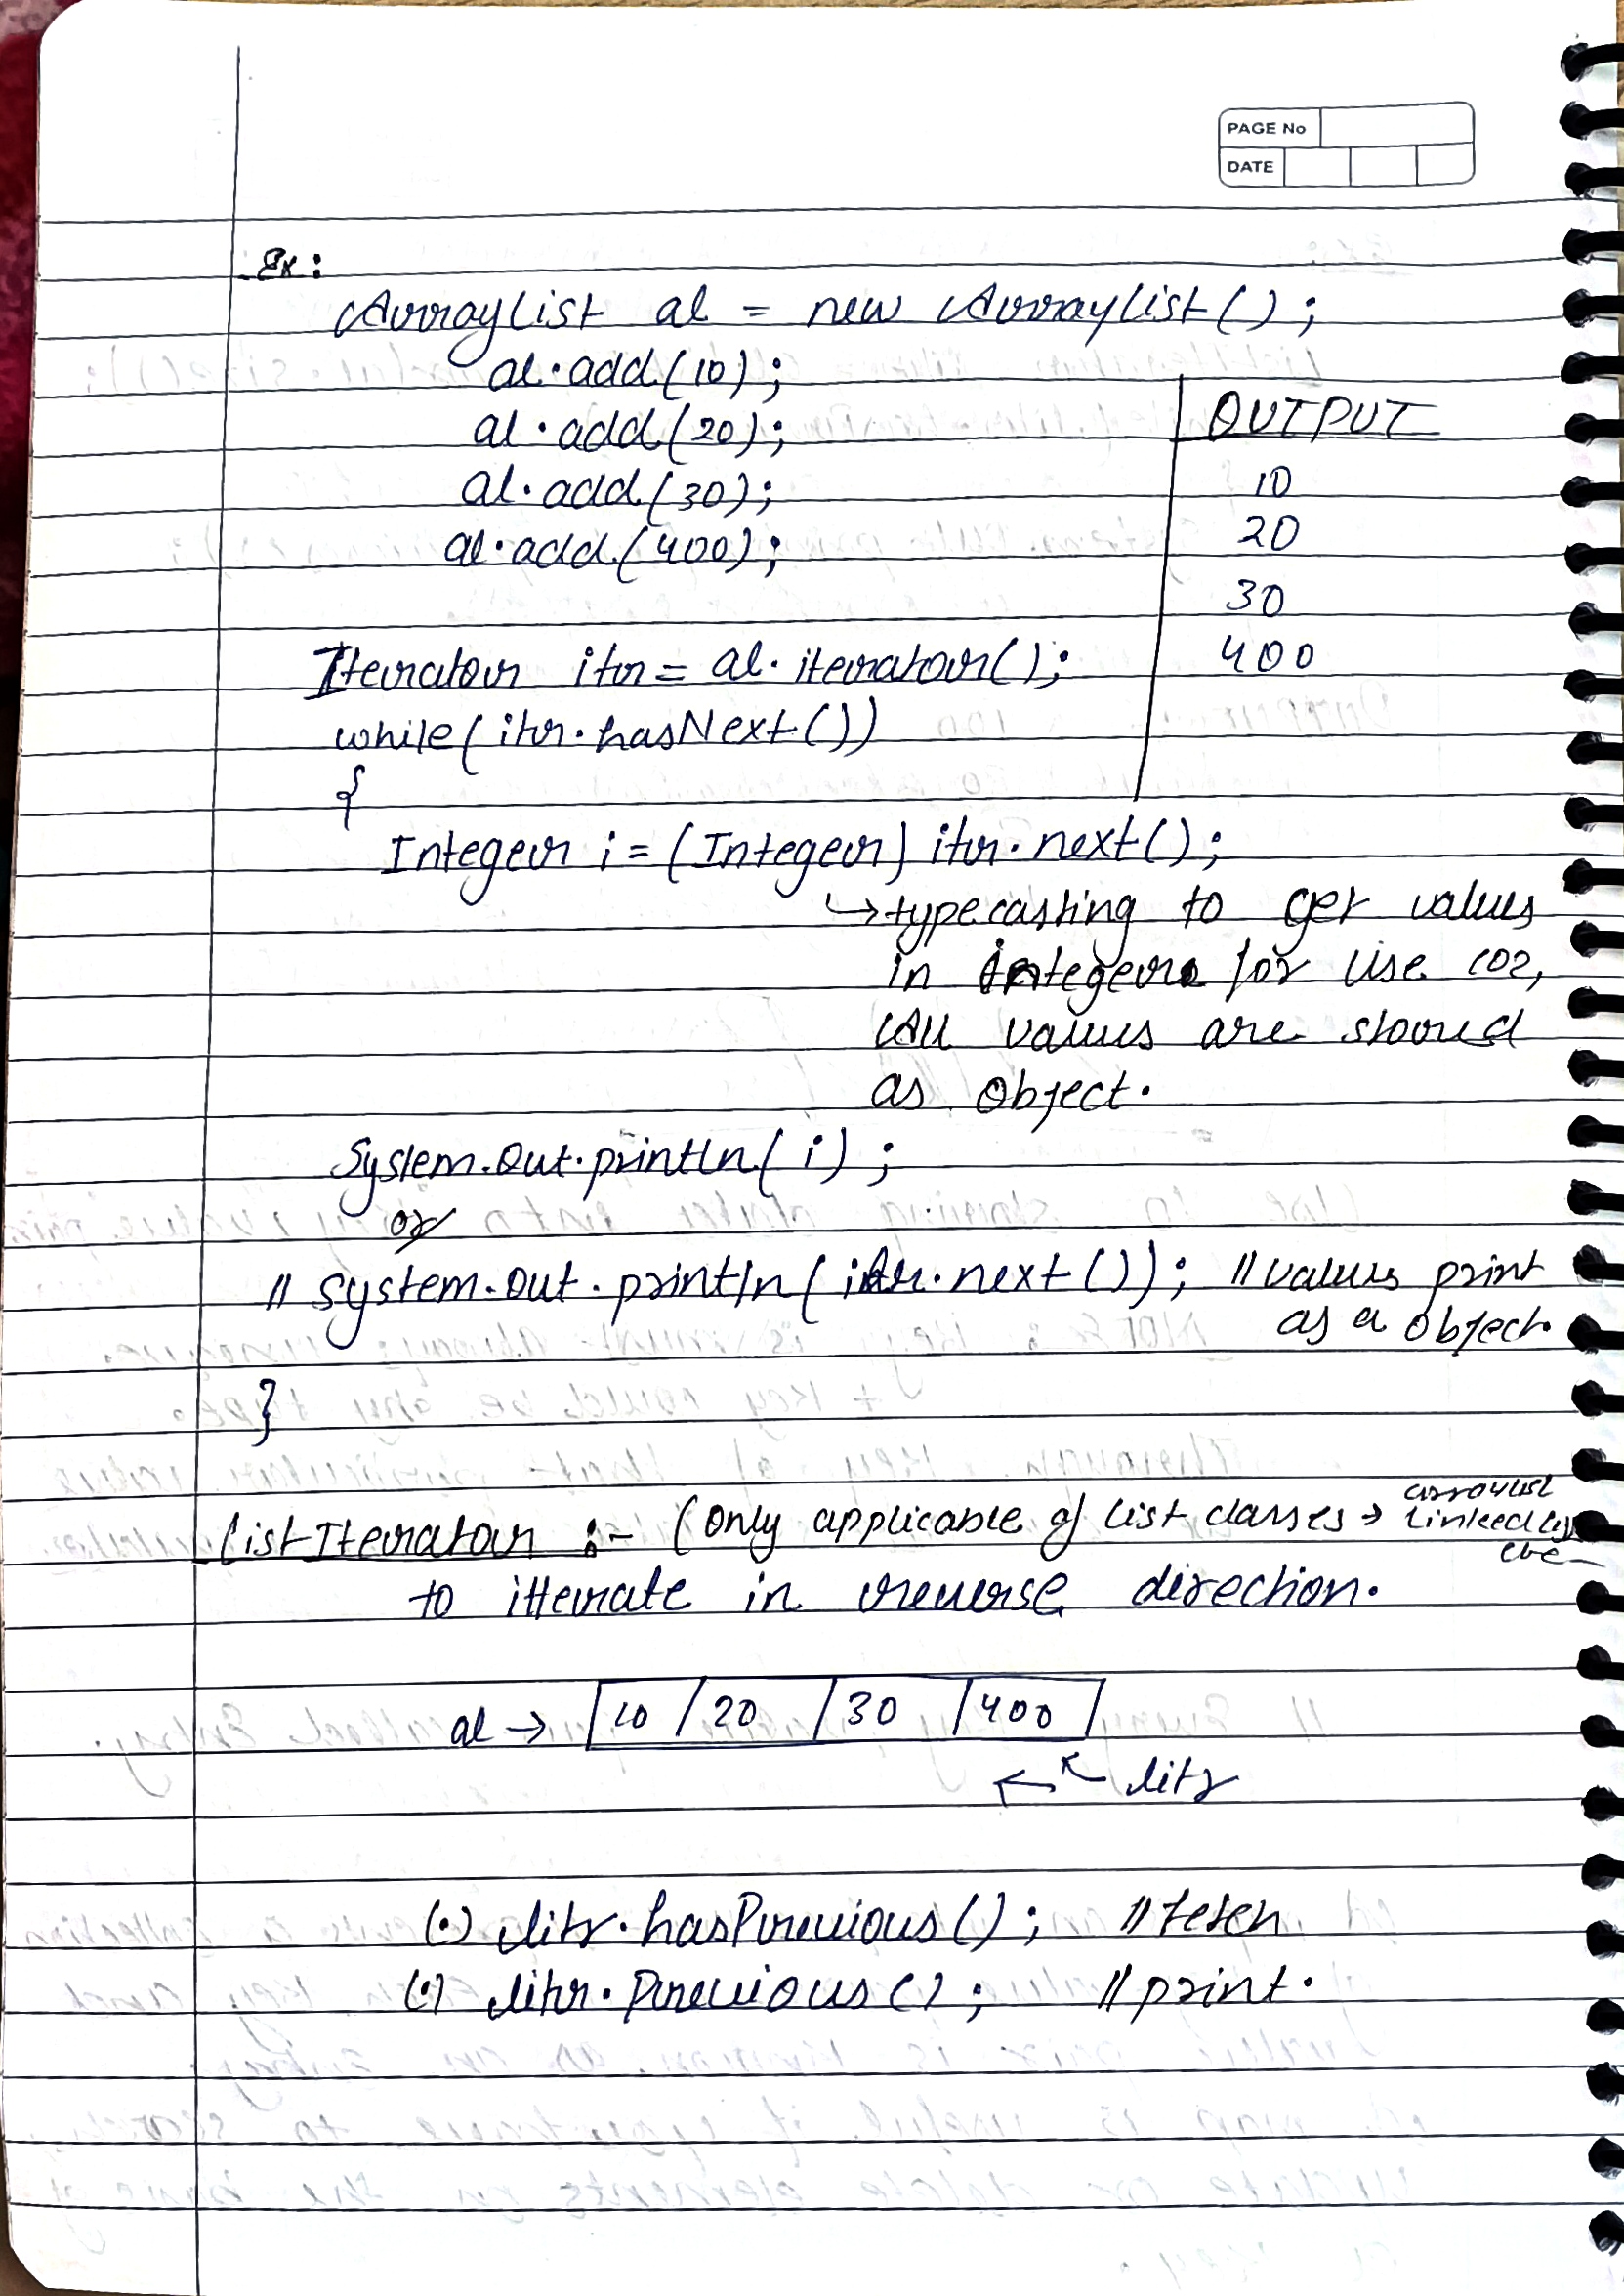 PAGE No
DATE
Ex:
ArrayList al = new ArrayList();
al.add(10);
al.add(20);
al.add(30);
al.add(400);
OUTPUT
10
20
30
400
Iterator itr = al.iterator();
while(itr.hasNext())
{
Integer i = (Integer) itr.next();
↳ typecasting to get values
in integer for use coz,
All values are stored
as object.
System.out.println(i);
or
// System.out.println(itr.next()); // values print
as a object.
}
ListIterator :- (only applicable of list classes → arraylist
linkedlist
etc
to itterate in reverse direction.
al → 10 / 20 / 30 / 400
litr
(•) litr.hasPrevious(); // fetch
(•) litr.Previous(); // print.